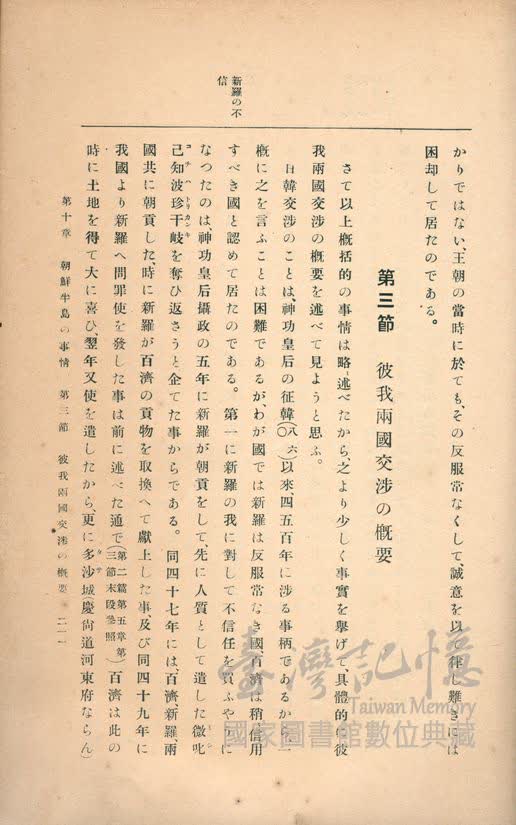 新羅の不
信
かりではない、王朝の當時に於ても、その反服常なくして、誠意を以て律し難きには
困却して居たのである。
第三節 彼我兩國交渉の概要
さて以上概括的の事情は略述べたから、之より少しく事實を擧げて、具體的に彼
我兩國交渉の概要を述べて見ようと思ふ。
日韓交渉のことは、神功皇后の征韓(八六〇)以來、四五百年に渉る事柄であるから、一
概に之を言ふことは困難であるが、わが國では新羅は反服常なき國百濟は稍、信用
すべき國と認めて居たのである。第一に新羅の我に對して不信任を買ふやうに
なつたのは、神功皇后攝政の五年に新羅が朝貢をして先に人質として遣した微叱
己知波珍干岐を奪ひ返さうと企てた事からである。同四十七年には、百濟、新羅、兩
コチハトリカンキ
國共に朝貢した、時に新羅が百濟の貢物を取換へて獻上した事、及び同四十九年に
我國より新羅へ問罪使を發した事は前に述べた通で(第二篇第五章第三節末段參照)百濟は此の
時に土地を得て大に喜び、翌年又使を遣したから、更に多沙城(慶尙道河東府ならん)
タサ
第十章 朝鮮半島の事情 第三節 彼我兩國交渉の概要 二一一
臺灣記憶
Taiwan Memory
國家圖書館數位典藏